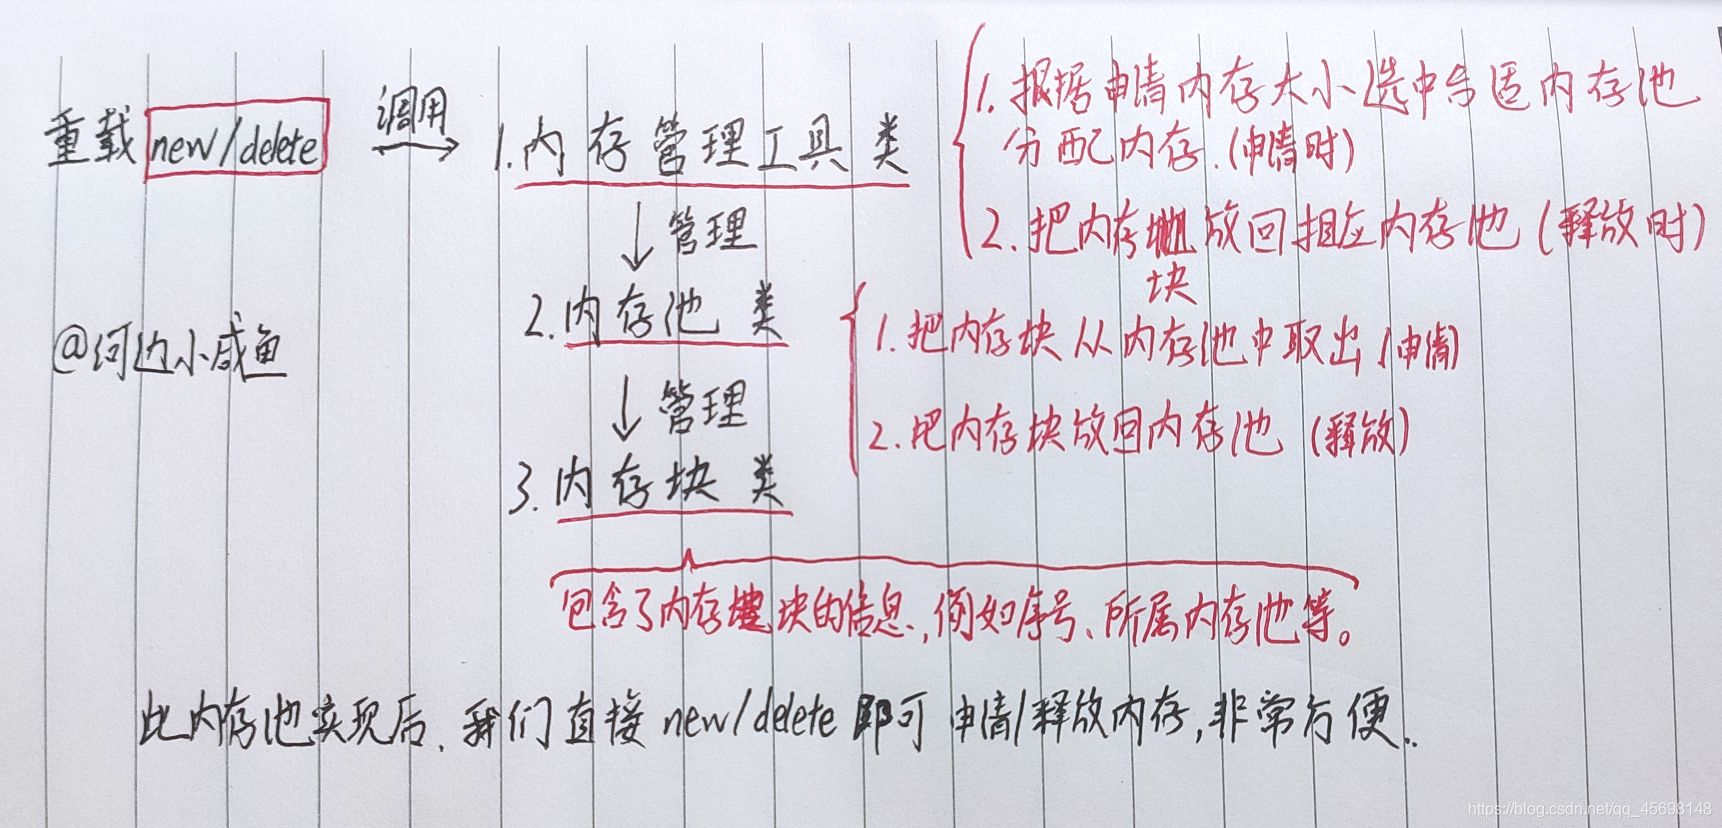 重载 new/delete 调用 1.内存管理工具类
1.根据申请内存大小选中合适内存池
分配内存.(申请时)
2.把内存块放回相应内存池(释放时)
管理
2.内存池类
1.把内存块从内存池中取出(申请)
2.把内存块放回内存池(释放)
@河边小咸鱼
管理
3.内存块类
包含了内存块的信息,例如序号、所属内存池等。
此内存池实现后,我们直接new/delete即可申请/释放内存,非常方便..
https://blog.csdn.net/qq_45698148